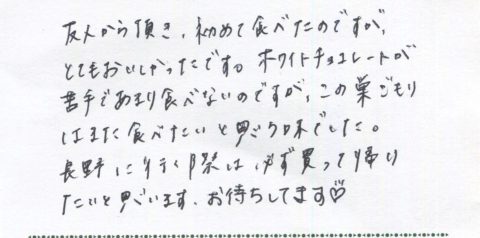 友人から頂き、初めて食べたのですが、
とてもおいしかったです。ホワイトチョコレートが
苦手であまり食べないのですが、この巣ごもり
はまた食べたいと思う味でした。
長野に行く際は必ず買って帰り
たいと思います、お待ちしてます♡